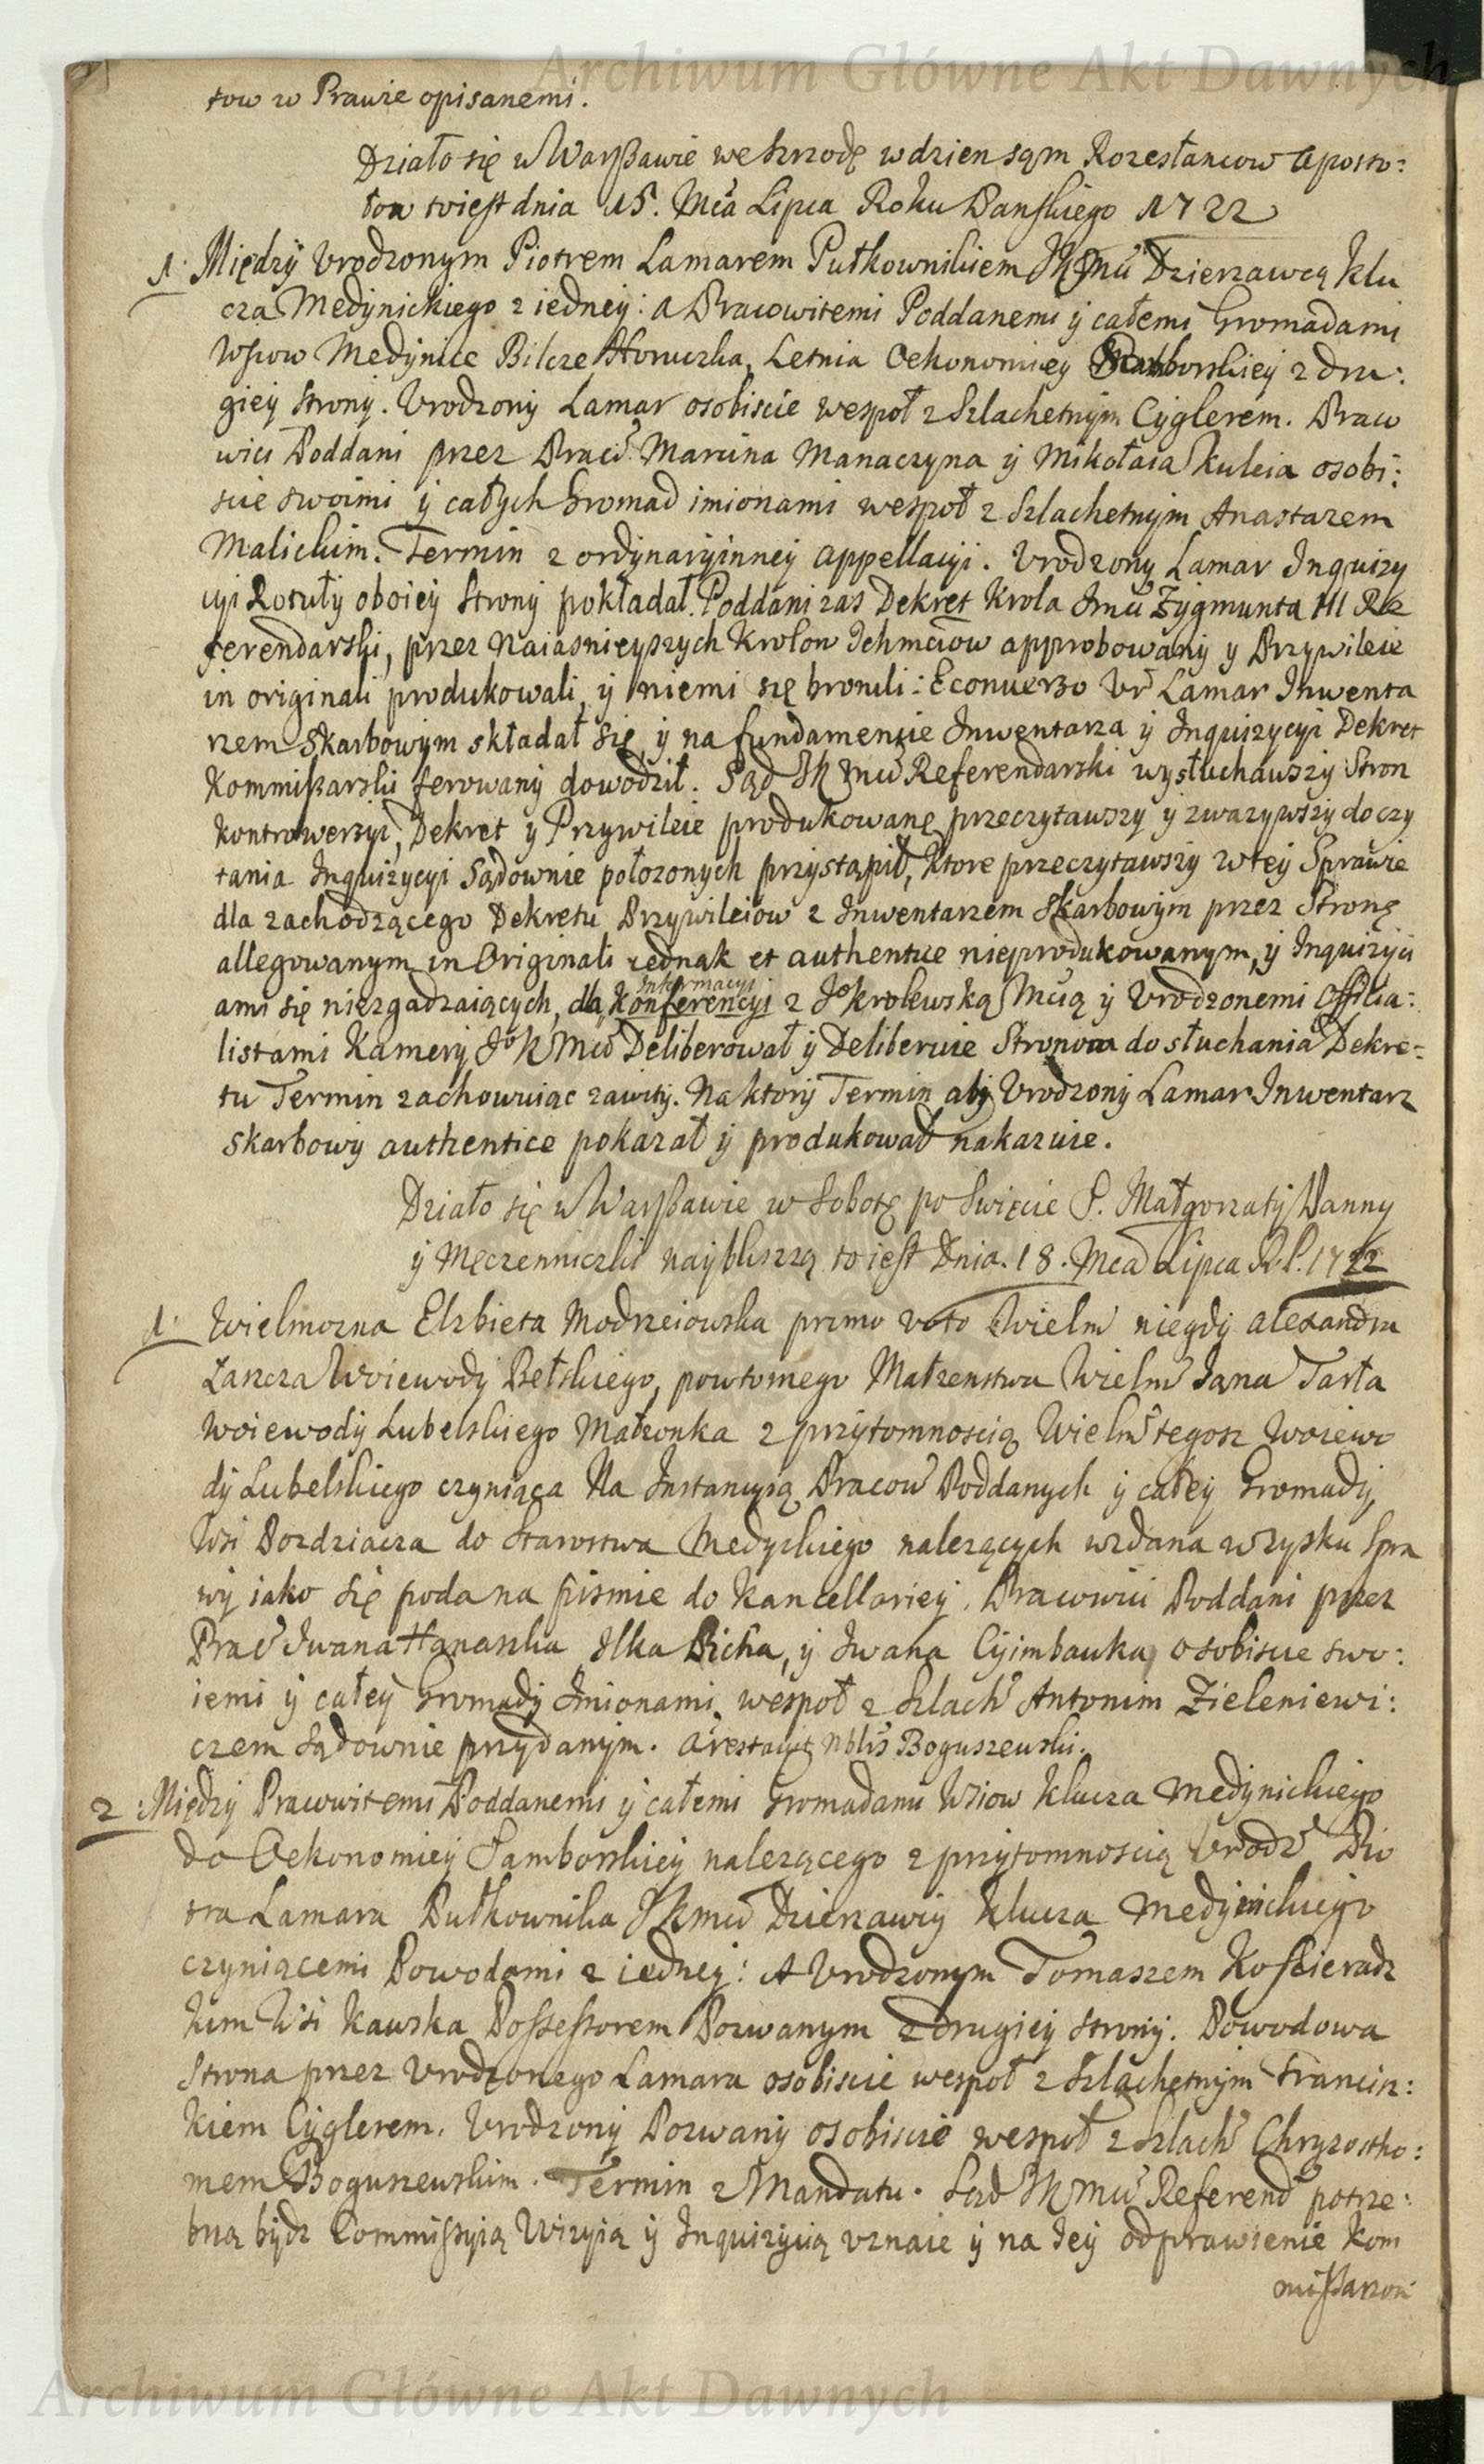 Archiwum Główne Akt Dawnych
tow w Prawie opisanemi.
Działo się w Warßawie we Srzodę w dzien sąm Rozesłancow Aposto:
łow to iest dnia 15. Mća Lipca Roku Panskiego 1722
1. Między Vrodzonym Piotrem Lamarem Pułkownikiem JKMći Dzierzawcą Klu
cza Medynickiego z iedney: a Pracowitemi Poddanemi ÿ całemi Gromadami
Wsiow Medynice Bilcze Horuczka, Letnia Oekonomiey Samborskiey z dru:
giey Strony. Vrodzony Lamar osobiscie wespoł z Szlachetnym Cyglerem. Praco
wici Poddani przez Prać Marcina Manaczyna ÿ Mikołaia Kuleia osobi:
scie swoimi ÿ całych Gromad imionami wespoł z Szlachetnym Anastazem
Malickim. Termin z ordynaryinney appellacyi. Vrodzony Lamar Inquizy
cyi Rotuły oboiey Strony pokładał. Poddani zas Dekret Krola Jmći Zygmunta III Re
ferendarski, przez Naiasnieyszych Krolow Ichmciow approbowany y Przywileie
in originali produkowali, ÿ niemi się bronili: Econuerso Vr Lamar Inwenta
rzem Skarbowym składał się, ÿ na fundamencie Inwentarza ÿ Inquizycyi Dekret
Kommißarski ferowany dowodził. Sąd JKMći Referendarski wysłuchawszy Stron
kontrowersyi, Dekret ÿ Przywileie produkowanę przeczytawszy ÿ zwazywszy do czy
tania Inquizycyi Sądownie połozonych przystąpił, Ktore przeczytawszy w tey Sprawie
dla zachodzącego Dekretu Przywileiow z Inwentarzem Skarbowym przez Stronę
allegowanym in Originali iednak et authentice nieprodukowanym, ÿ Inquizycy
Informacyi
ami się niezgadzaiących, dla Konferencyi z Jo Krolewską Mcią ÿ Vrodzonemi Officia:
listami Kamery Jo K Mći Deliberował ÿ Deliberuie Stronom do słuchania Dekre:
tu Termin zachowuiąc zawity. Na ktory Termin aby Vrodzony Lamar Inwentarz
Skarbowy authentice pokazał ÿ produkował nakazuie.
Działo się w Warßawie w Sobotę po Swięcie S. Małgorzaty Panny
ÿ Męczenniczki naybliszszą to iest Dnia. 18. Mca Lipca R.P. 1722
1. Wielmozna Elzbieta Modrzeiowska primo voto Wielm niegdy Alexandra
Łaszcza Woiewody Bełskiego, powtornego Małzenstwa Wielm Jana Tarła
Woiewody Lubelskiego Małzonka z przytomnoscią Wielm tegosz Woiewo
dy Lubelskiego czyniąca Na Instancyą Pracow Poddanych ÿ całey Gromady
Wsi Pozdziacza do Starostwa Medyckiego nalezących wzdana w zysku Spra
wy iako się poda na pismie do Kancellariey. Pracowici Poddani przez
Prać Iwana Hanaszka Ilka Bicha, ÿ Iwana Cyimbauka, osobiscie swo:
iemi ÿ całey Gromady Imionami, wespoł z Szlach Antonim Zieleniewi:
czem Sądownie przydanym. Arestavit Nblis Boguszewski.
2 Między Pracowitemi Poddanemi ÿ całemi Gromadami Wsiow Klucza Medynickiego
do Oekonomiey Samborskiey nalezącego z przytomnoscią Vrodz Pio
tra Lamara Pułkownika JKMći Dzierzawcy Klucza Medynickiego
czyniącemi Powodami z iedney: A Vrodzonym Tomaszem Kossieradz
kim Wsi Kawska Possessorem Pozwanym z drugiey Strony. Powodowa
Strona przez Vrodzonego Lamara osobiscie wespoł z Szlachetnym Francisz:
kiem Cyglerem. Vrodzony Pozwany osobiscie wespoł z Szlach Chryzosto:
mem Boguszewskim. Termin z Mandatu. Sąd JKMći Referend potrze:
bną bydz Commissyią Wizyią ÿ Inquizycią vznaie ÿ na Iey odprawienie Kom
mißarzow
Archiwum Główne Akt Dawnych